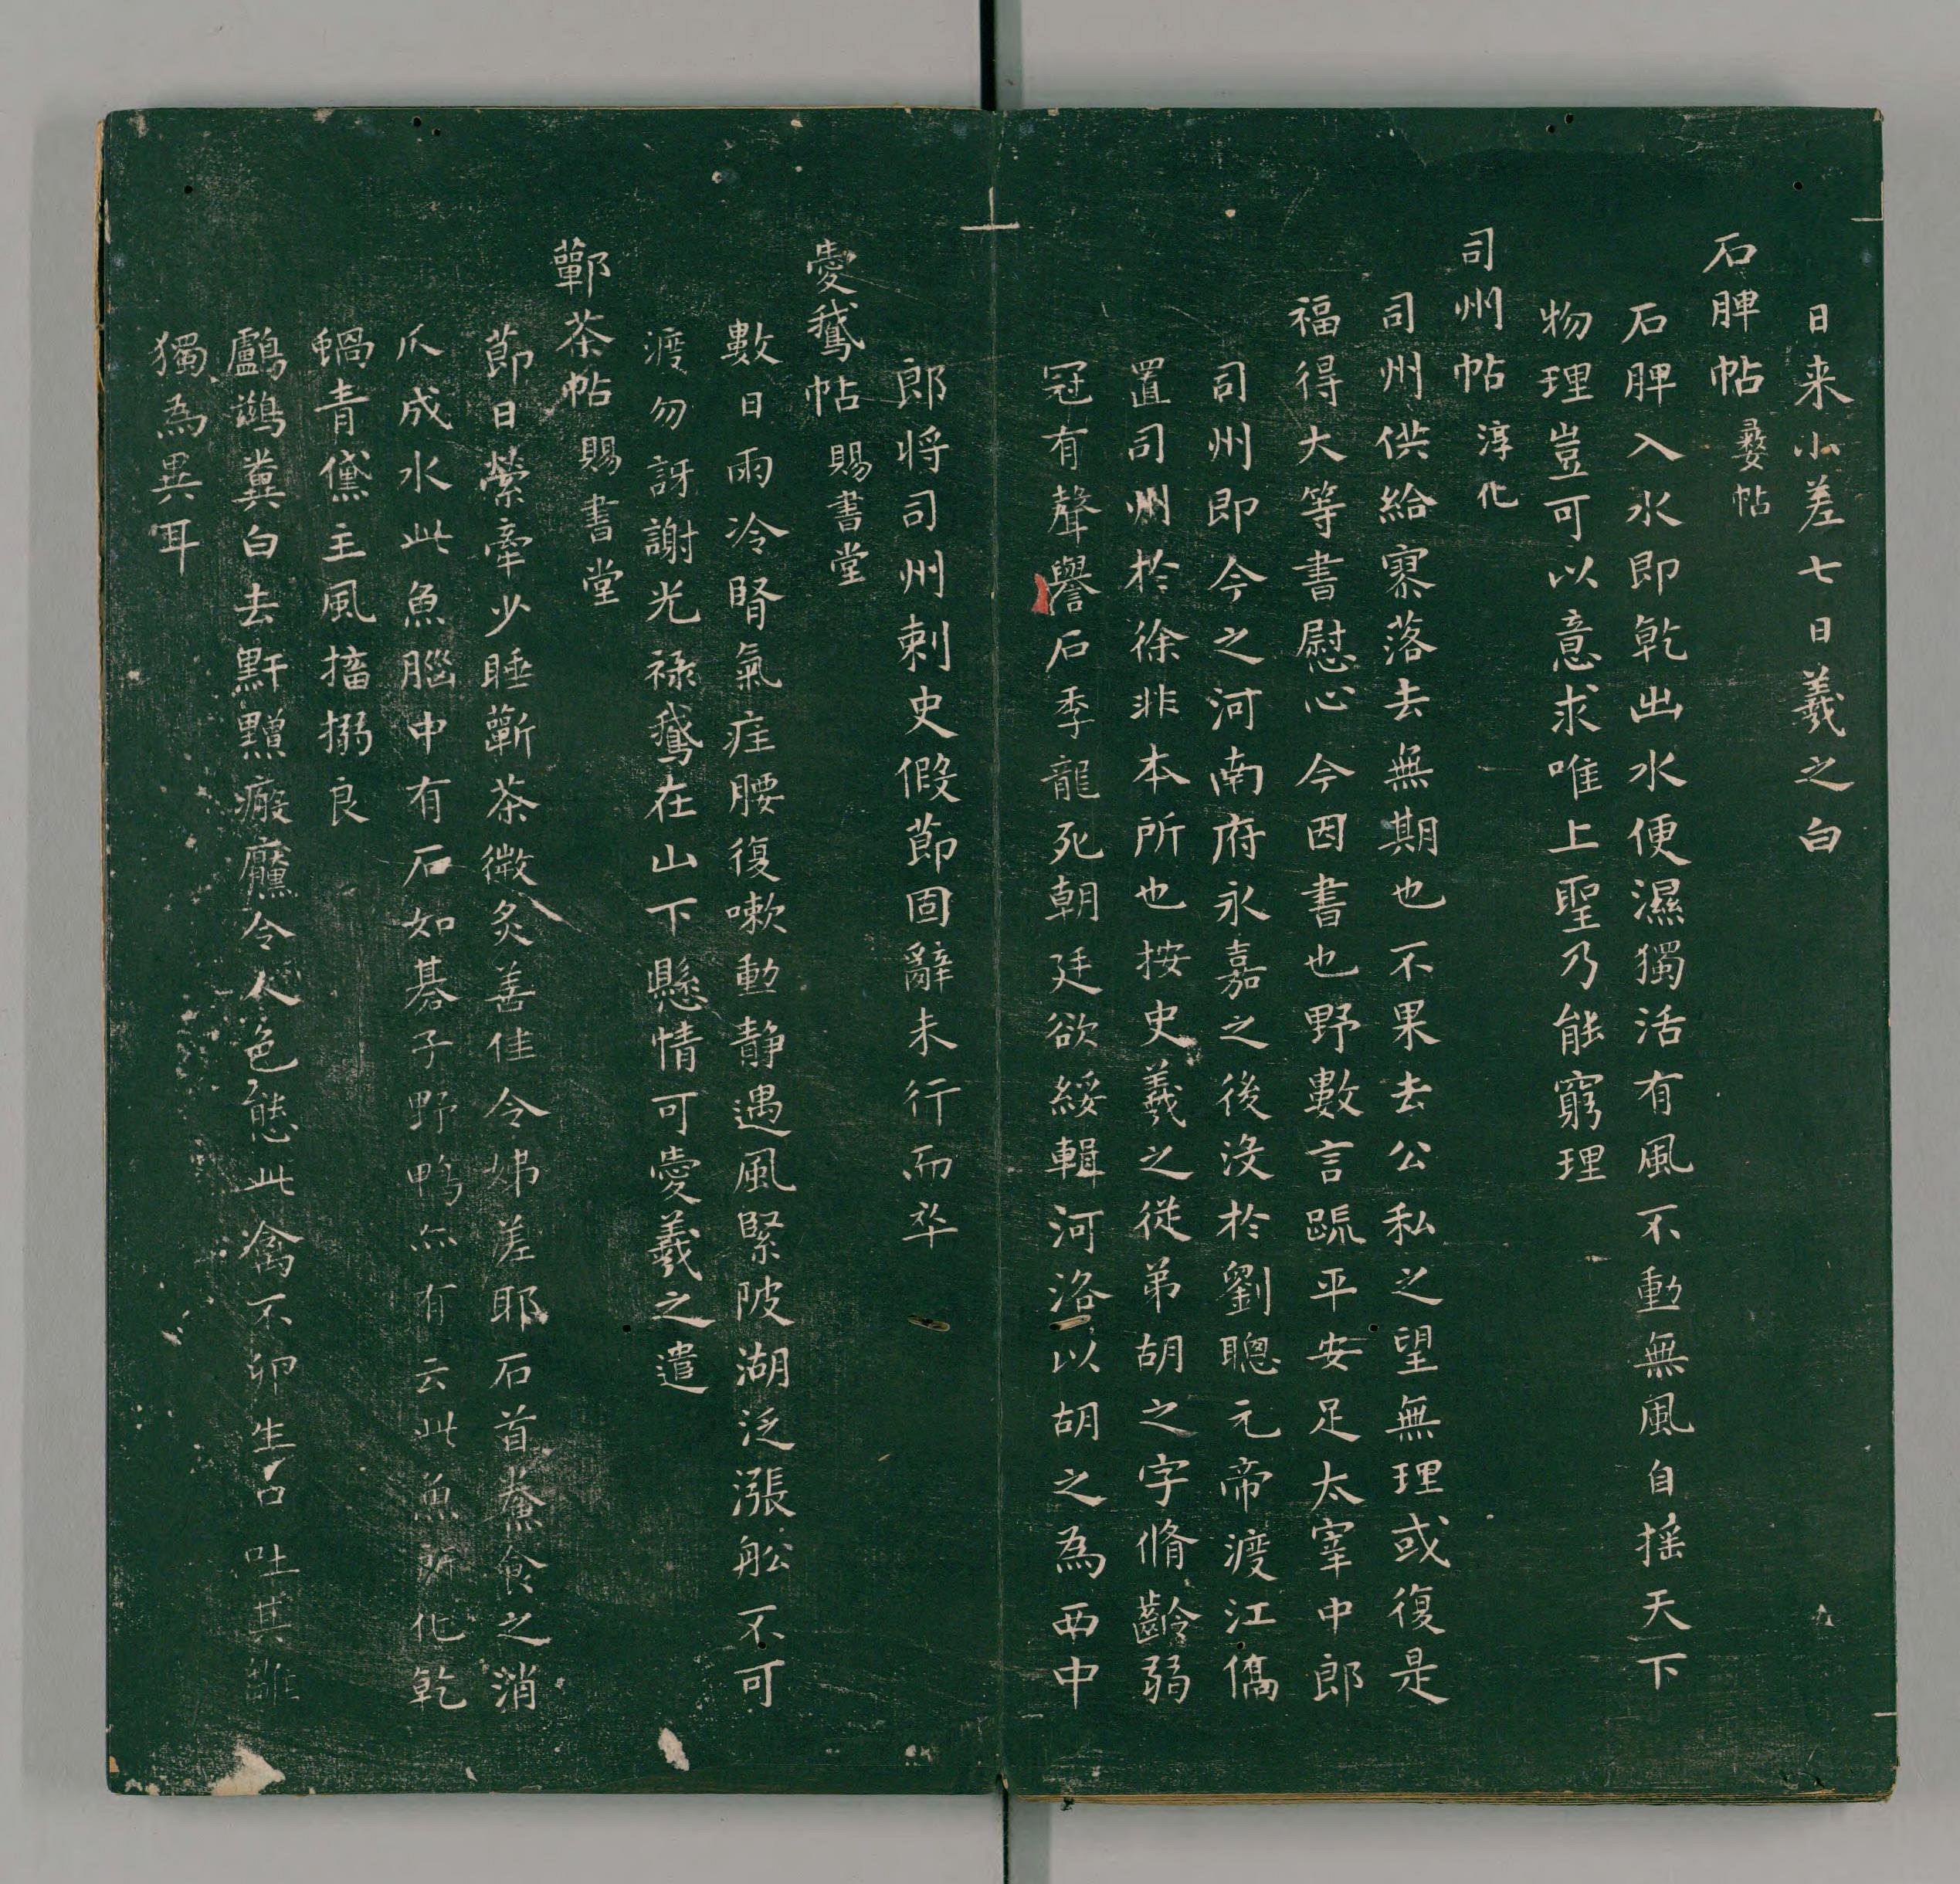 日来小差七日羲之白
石脾帖 彜帖
石脾入水即乾出水便濕獨活有風不動無風自摇天下
物理豈可以意求唯上聖乃能窮理
司州帖 淳化
司州供給寥落去無期也不果去公私之望無理或復是
福得大等書慰心今因書也野數言疏平安足太宰中郎
司州即今之河南府永嘉之後没於劉聰元帝渡江僑
置司州於徐非本所也按史羲之從弟胡之字脩齡弱
冠有聲譽石季龍死朝廷欲綏輯河洛以胡之為西中
郎将司州刺史假節固辭未行而卒
愛鵝帖 賜書堂
數日雨冷腎氣疰腰復嗽動靜遇風緊陂湖泛漲舩不可
渡勿訝謝光禄鵝在山下懸情可愛羲之遣
蘄茶帖 賜書堂
節日縈牽少睡蘄茶微炙善佳令姊差耶石首鯗食之消
瓜成水此魚腦中有石如棊子野鴨亦有云此魚所化乾
蝸青黛主風搐搦良
鸕鷀糞白去䵟黵瘢黶令人色態此禽不卵生口吐其雛
獨為異耳